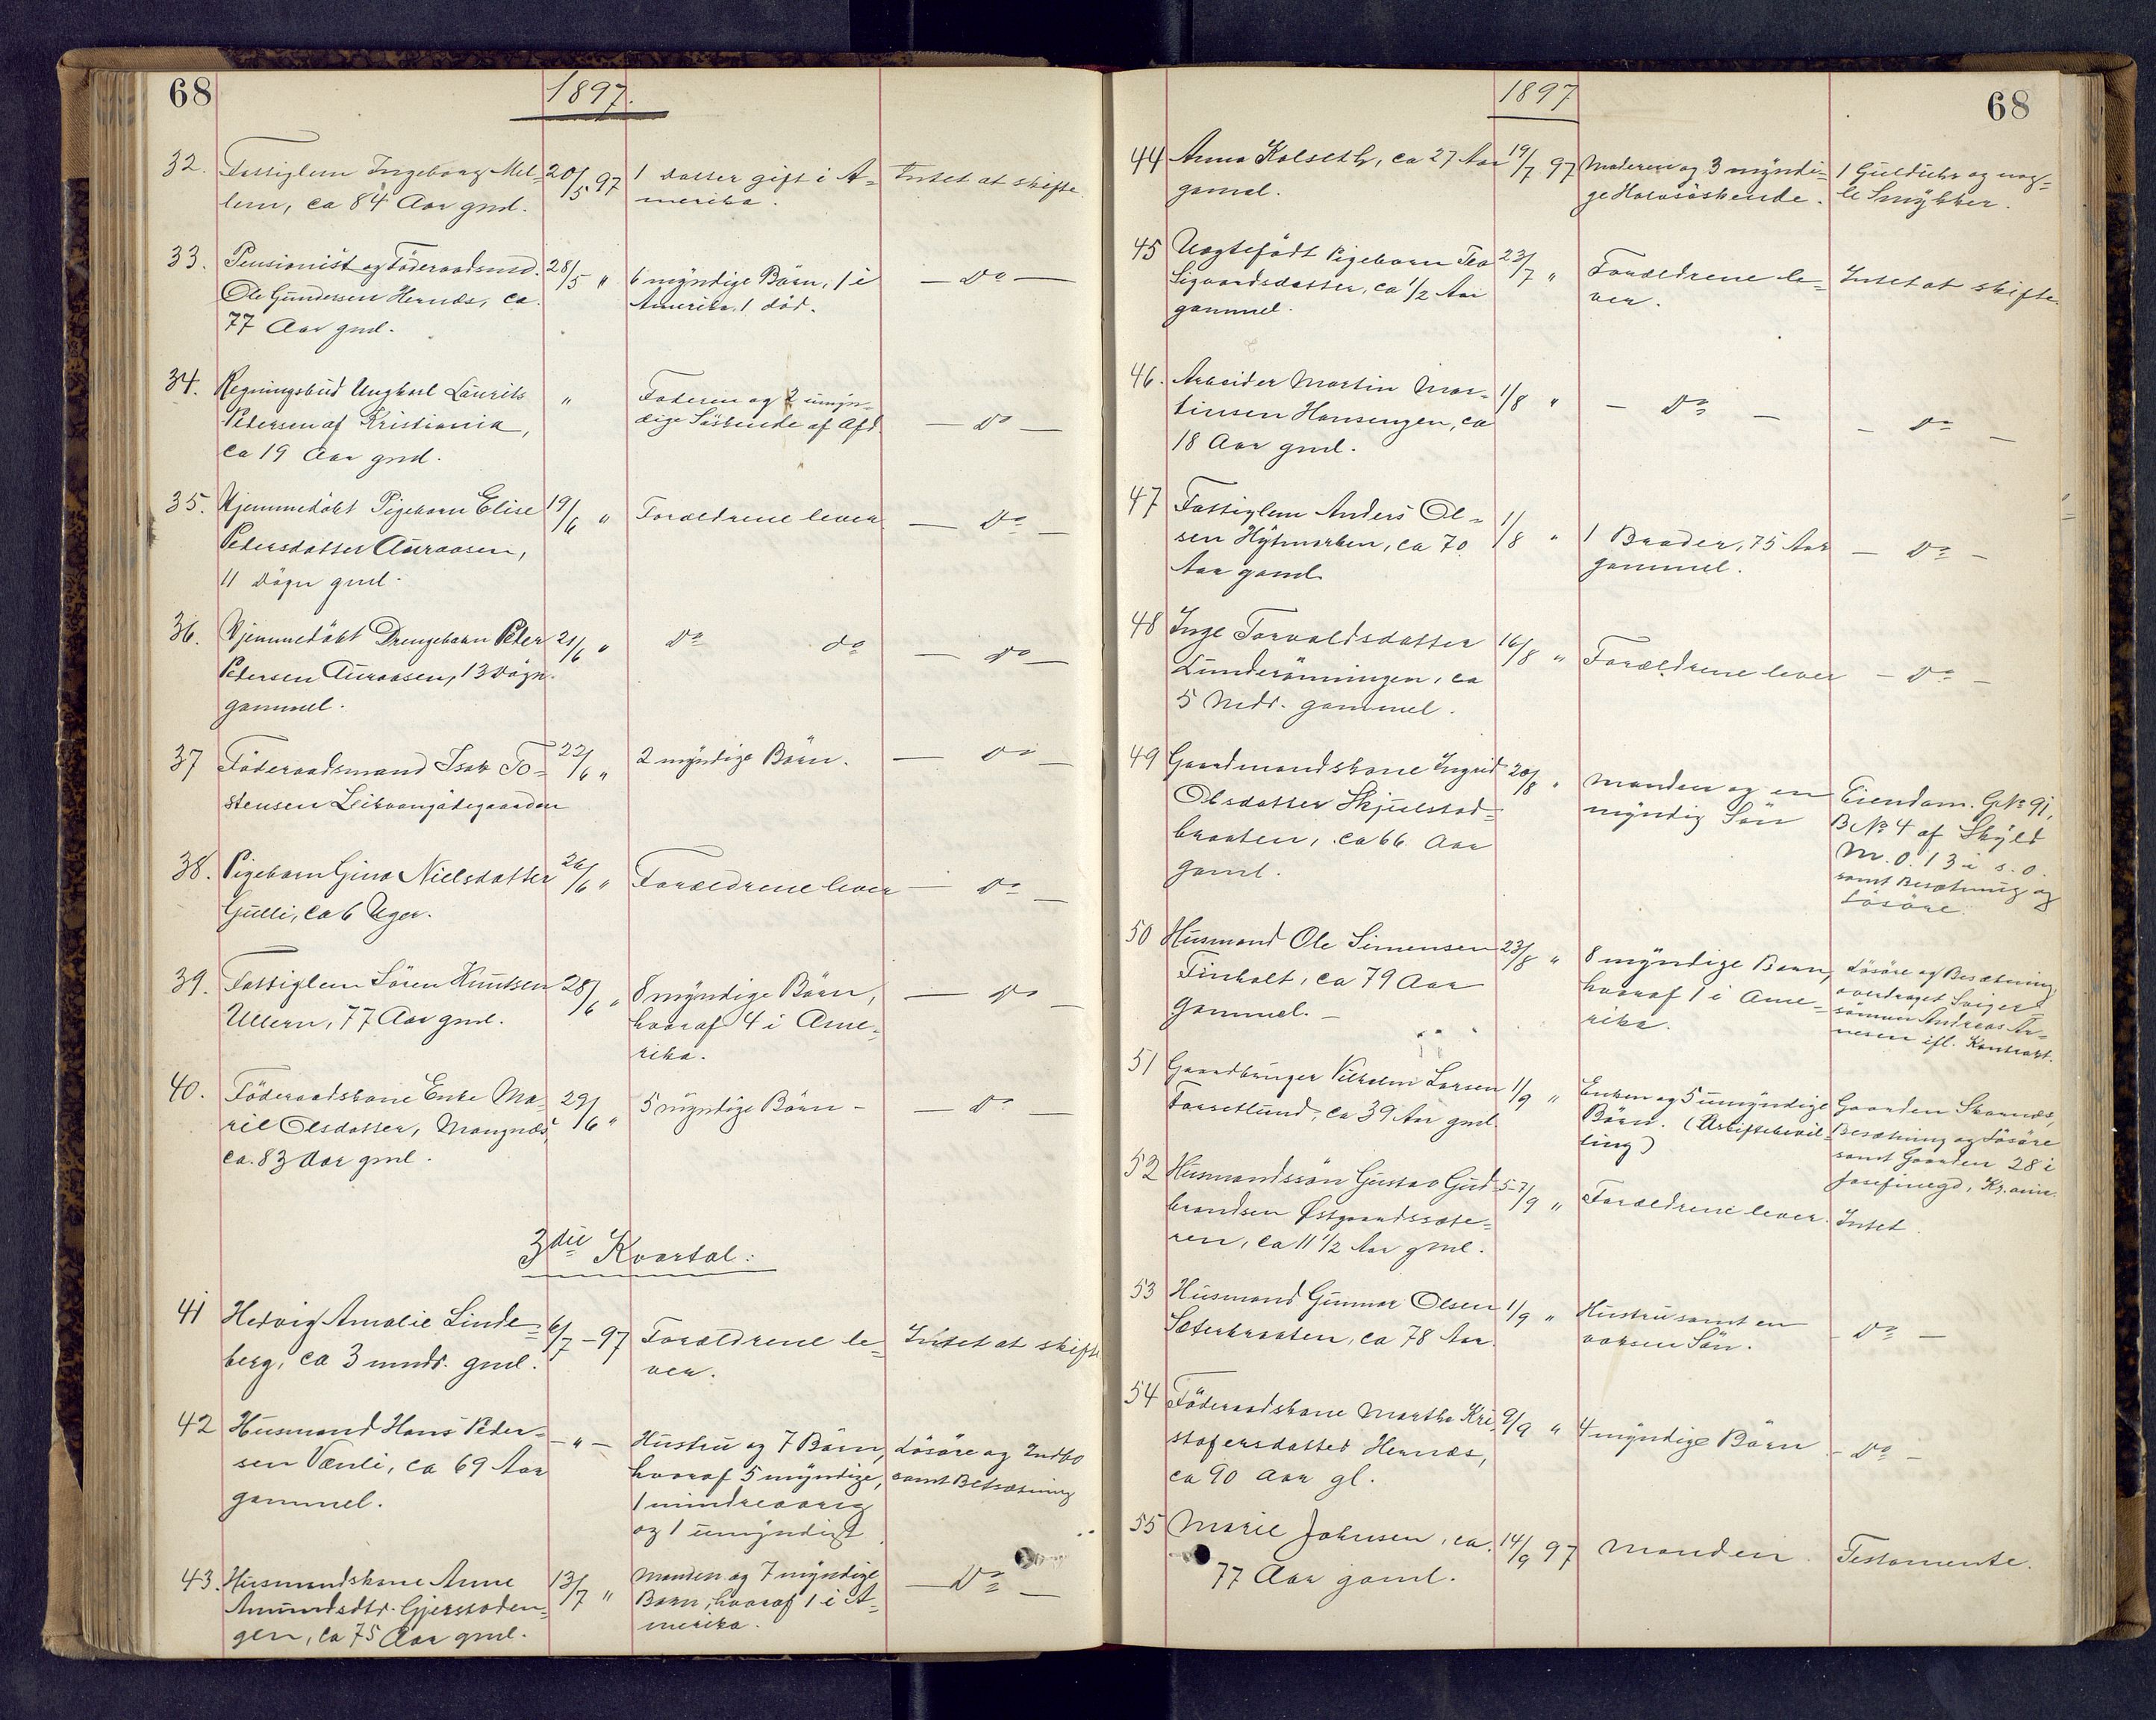 68
1897.
32. Fattiglem Ingeborg Mel-
lem, ca 84 Aar gml.
20/5 97
1 datter gift i A-
merika.
Intet at skifte
33. Pensionist og Föderaadsmd.
Ole Gundersen Hernæs, ca.
77 Aar gml.
28/5 "
6 myndige Börn, 1 i
Amerika, 1 död.
— do —
34. Regningsbud Ungkarl Laurits
Petersen af Kristiania,
ca 19 Aar gml.
"
Faderen og 2 umyn-
dige Söskende af Afd.
— do —
35. Hjemmedöbt Pigebarn Elise
Petersdatter Auraasen,
11 Dögn gml.
19/6 "
Forældrene lever
— do —
36. Hjemmedöbt Drengebarn Peter
Petersen Auraasen, 13 Dögn
gammel.
21/6 "
do do
— do —
37 Föderaadsmand Isak To-
stensen
22/6 "
2 myndige Börn.
— do —
38. Pigebarn Gina Nielsdatter
Gulli, ca 6 Uger.
26/6 "
Forældrene lever
— do —
39. Fattiglem Sören Knutsen
Ullern, 77 Aar gml.
28/6 "
8 myndige Börn,
hvoraf 4 i Ame-
rika.
— do —
40. Föderaadskone Enke Ma-
ril Olsdatter, Mangnæs,
ca. 83 Aar gml.
29/6 "
5 myndige Börn -
— do —
3die Kvartal:
41 Hedvig Amalie Linde-
berg, ca 3 mndr. gml.
6/7 - 97
Forældrene le-
ver.
Intet at skifte
42 Husmand Hans Peder-
sen Vænli, ca 69 Aar
gammel.
— " —
Hustru og 7 Börn,
hvoraf 5 myndige,
1 mindreaarig
og 1 umyndigt
Lösöre og Indbo
samt Besætning
43. Husmandskone Anne
Amundsdtr. Gjersröden-
gen, ca 75 Aar gml.
13/7 "
Manden og 7 myndige
Börn, hvoraf 1 i A-
merika.
— do —
1897
68
44 Anna Kolseth, ca 27 Aar
gamel.
19/7 97
Moderen og 3 myndi-
ge Halvsöskende.
1 Guldiuhr og nog-
le Smykker.
45 Uægtefödt Pigebarn Tea
Sigvardsdatter, ca 1/2 Aar
gammel.
23/7 "
Forældrene le-
ver.
Intet at skifte
46. Arbeider Martin Mar-
tinsen Hansengen, ca
18 Aar gml.
1/8 "
— do —
— do —
47 Fattiglem Anders Ol-
sen Hytmarken, ca 70
Aar gaml.
1/8 "
1 Broder, 75 Aar
gammel.
— do —
48 Inge Torvaldsdatter
Lunderönningen, ca
5 Mdr. gammel.
16/8 "
Forældrene lever
— do —
49 Gaardmandskone Ingrid
Olsdatter Skjulstad-
braaten, ca 66 Aar
gaml.
20/8 "
Manden og en
myndig Sön
Eiendom. G.No 91,
B.No 4 af Skyld
M. 0.13 i s. o.
samt Besætning og
Lösöre.
50 Husmand Ole Simensen
Finholt, ca 79 Aar
gammel. -
23/8 "
8 myndige Börn,
hvoraf 1 i Ame-
rika.
Lösöre og Besætning,
overdraget Sviger-
sönnen Andreas Ar-
nesen ifl. Kontrakt.
51 Gaardbruger Vilhelm Larsen
Forsetlund, ca 39 Aar gml.
1/9 "
Enken og 5 umyndige
Börn. (Uskiftebevil-
ling)
Gaarden Skarnæs,
Besætning og Lösöre
samt Gaarden 28 i
Josefinegd, Kr.ania.
52 Husmandssön Gustav Gud-
brandsen Østgaardssæte-
ren, ca 11 1/2 Aar gml.
5-7/9 "
Forældrene lever.
Intet.
53 Husmand Gunnar Olsen
Sæterbraaten, ca 78 Aar.
1/9 "
Hustru samt en
voksen Sön.
— do —
54 Föderaadskone Marthe Kri-
stofersdatter Hernæs,
ca 90 Aar gl.
9/9 "
4 myndige Börn
— do —
55 Marie Johnsen, ca.
77 Aar gaml.
14/9 97
Manden.
Testamente.